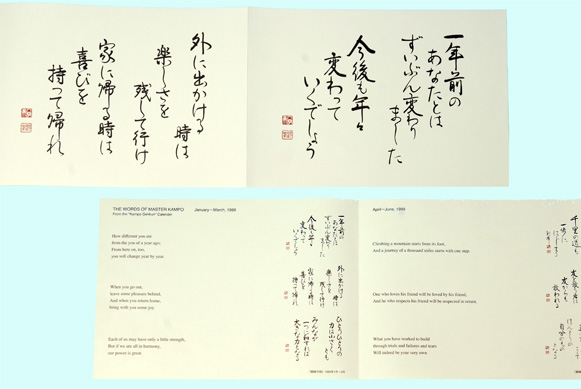 一年前の
あなたとは
ずいぶん変わり
ました
今後も年々
変わって
いくでしょう
外に出かける
時は
楽しさを
残して行け
家に帰る時は
喜びを
持って帰れ
THE WORDS OF MASTER KAMPO
From the "Kampo Senkun" Calendar
January—March, 1999
How different you are
from the you of a year ago;
From here on, too,
you will change year by year.
一年前の
あなたとは
ずいぶん変わりました
今後も年々
変わって
いくでしょう
When you go out,
leave some pleasure behind,
And when you return home,
bring with you some joy.
外に出かける
時は
楽しさを
残して行け
家に帰る時は
喜びを
持って帰れ
Each of us may have only a little strength,
But if we are all in harmony,
our power is great.
ひとりひとりの
力は小さくとも
みんなが
一つに和すれば
大きな力となる
April—June, 1999
Climbing a mountain starts from its foot,
And a journey of a thousand miles starts with one step.
千里の道も
One who loves his friend will be loved by his friend,
And he who respects his friend will be respected in return.
What you have worked to build
through trials and failures and tears
Will indeed be your very own.